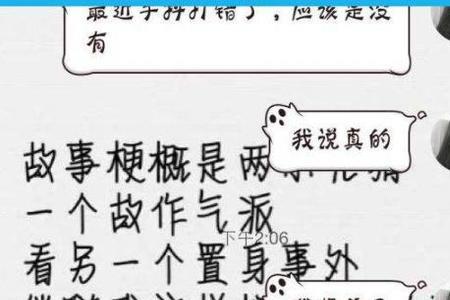 最近手抖打错了，应该是没
有
我说真的
故事梗概是两
一个故作气派
下午2:06
看另一个置身事外